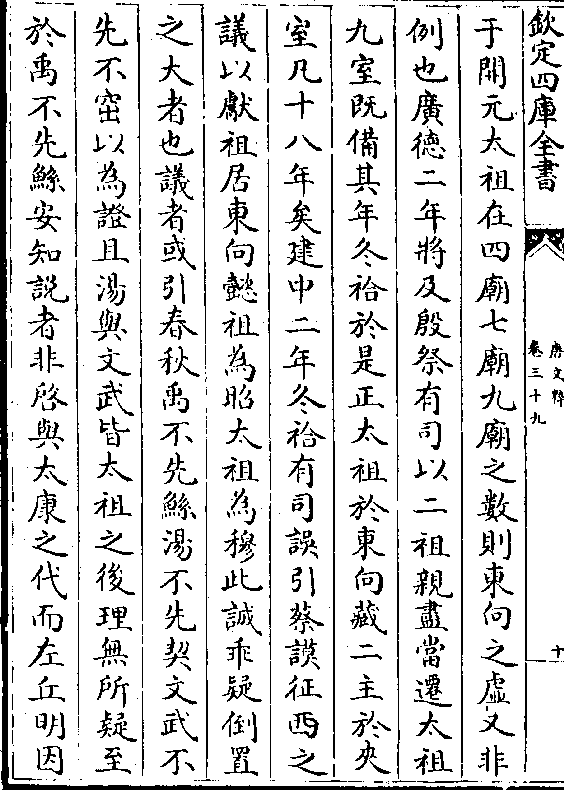 欽定四庫全書
唐文粹
卷三十九
十
于開元太祖在四廟七廟九廟之數則東向之虛又非
例也廣德二年將及殷祭有司以二祖親盡當遷太祖
九室既備其年冬祫於是正太祖於東向藏二主於夾
室凡十八年矣建中二年冬祫有司誤引蔡謨征西之
議以獻祖居東向懿祖為昭太祖為穆此誠乖疑倒置
之大者也議者或引春秋禹不先鯀湯不先契文武不
先不窋以為證且湯與文武皆太祖之後理無所疑至
於禹不先鯀安知說者非啓與太康之代而左丘明因